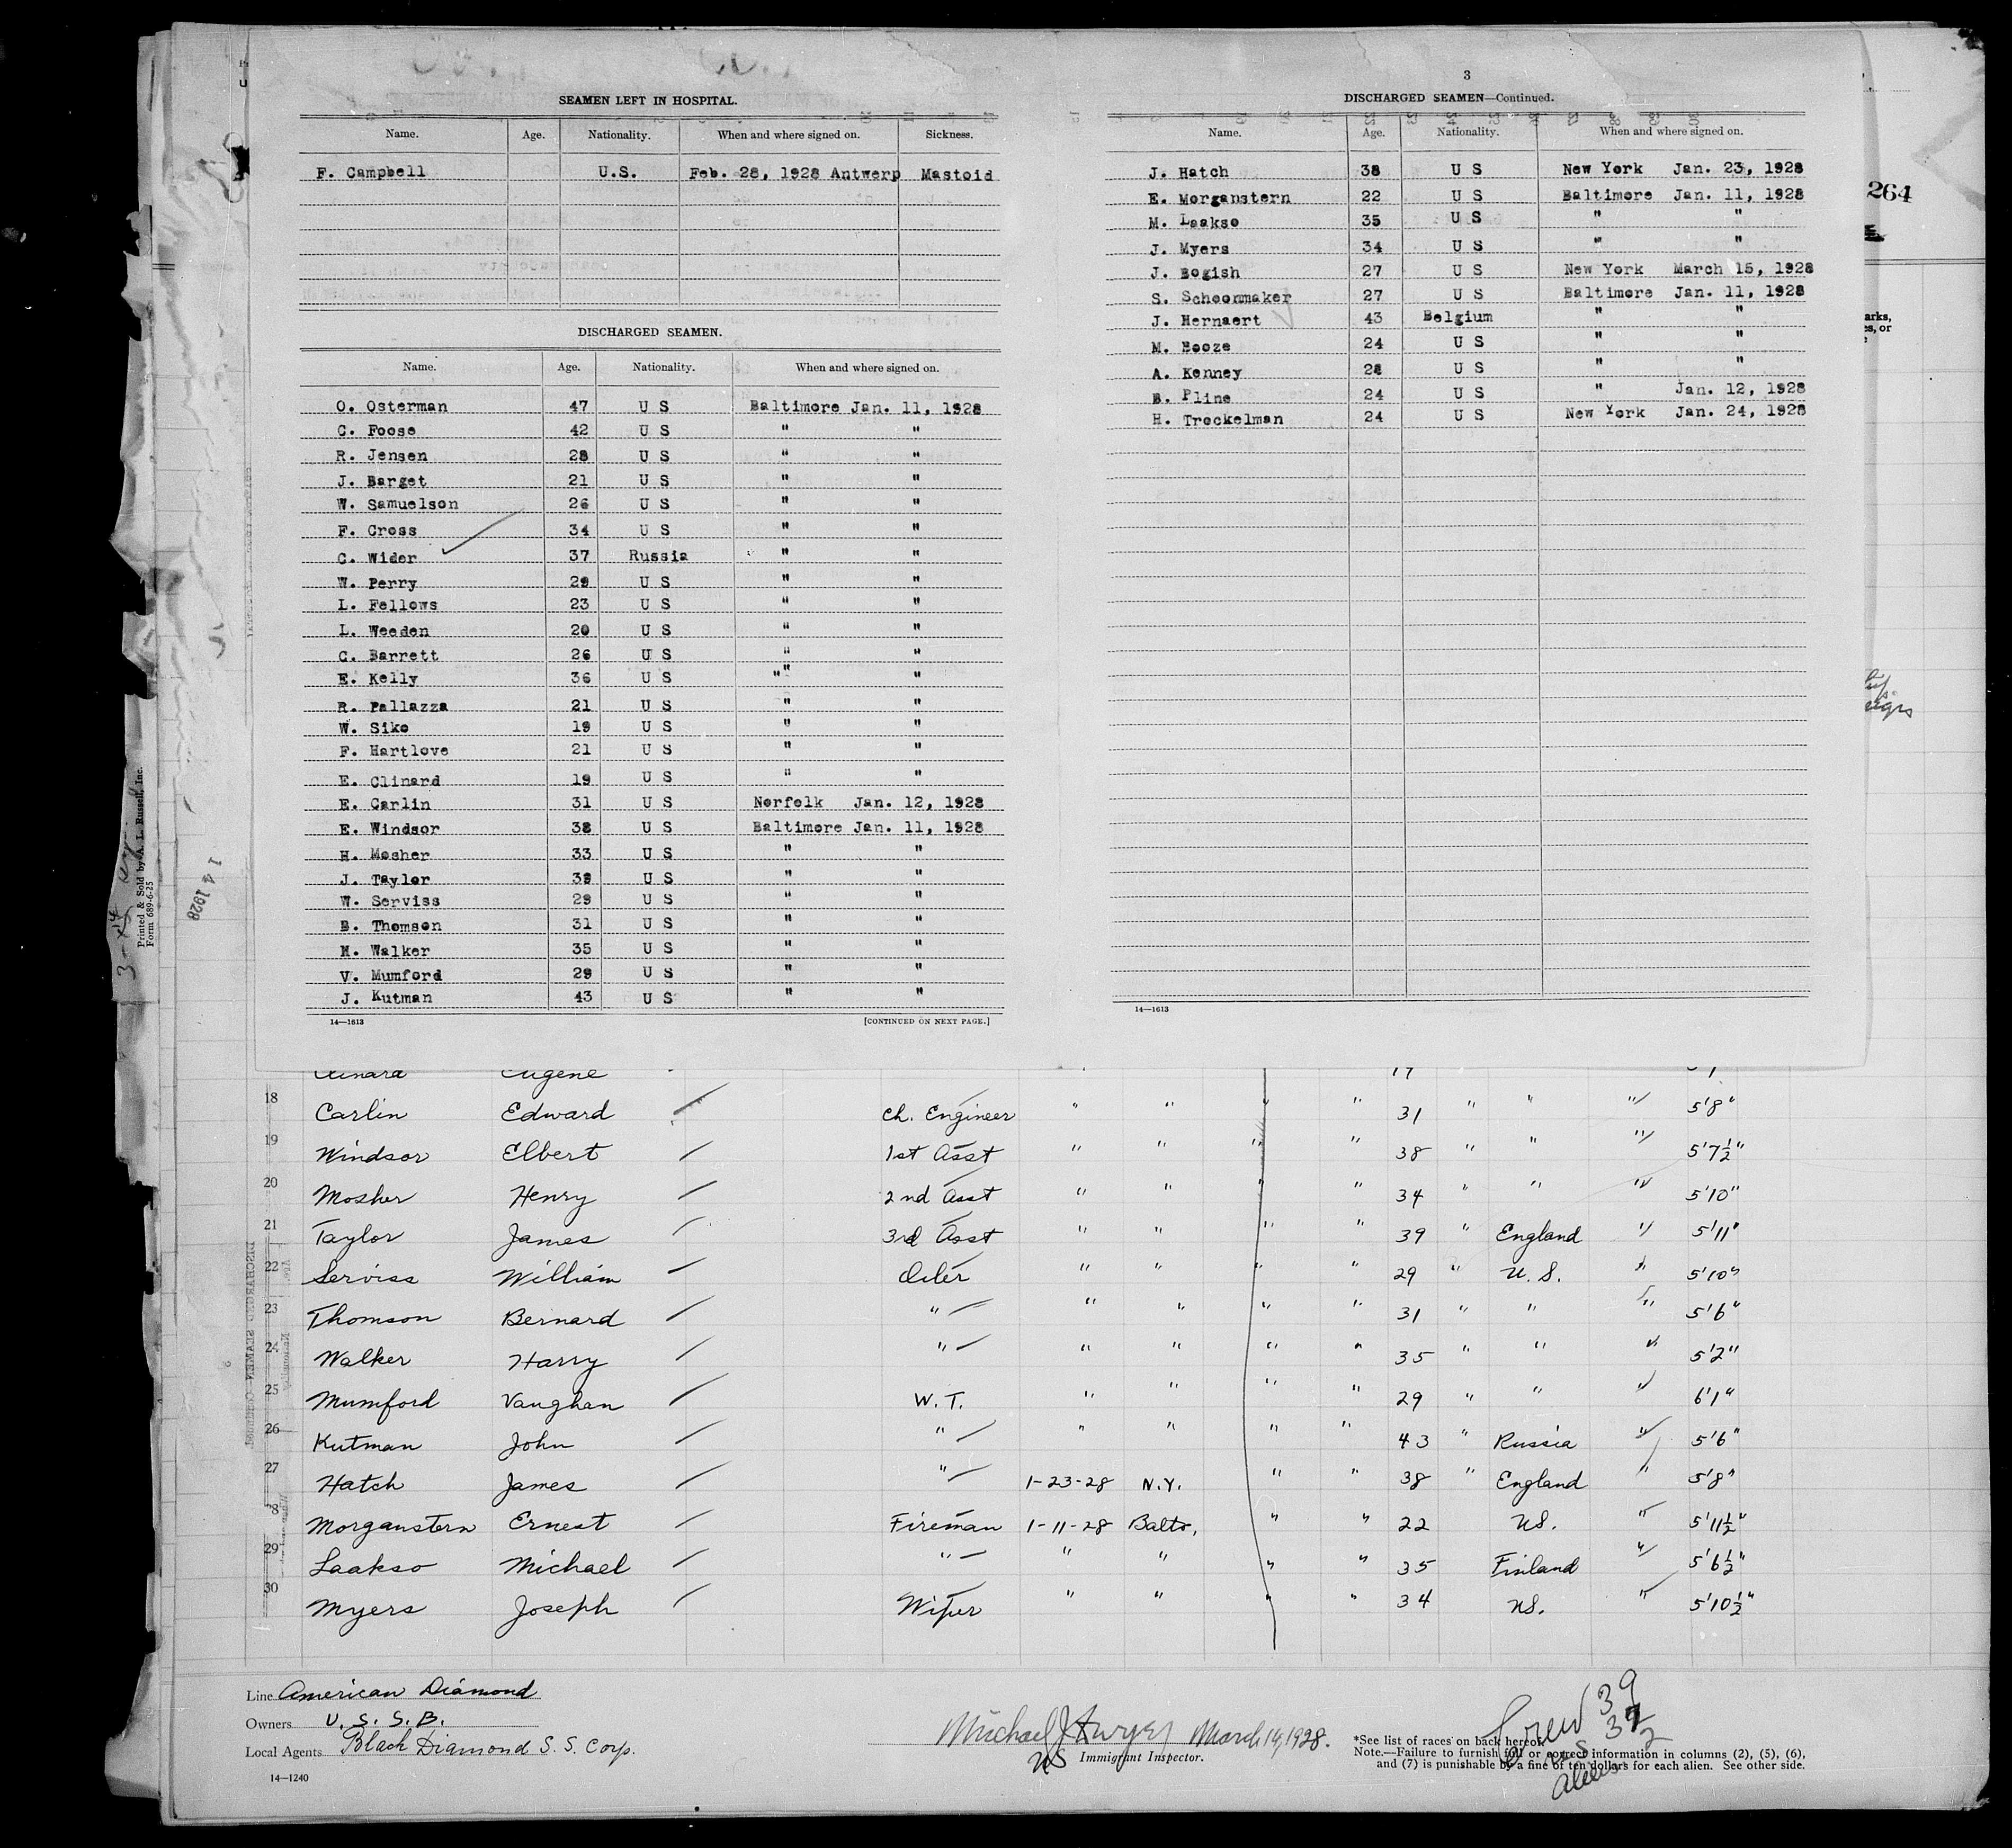 SEAMEN LEFT IN HOSPITAL.
Name. Age. Nationality. When and where signed on. Sickness.
F. Campbell U.S. Feb. 28, 1928 Antwerp Mastoid
DISCHARGED SEAMEN.
Name. Age. Nationality. When and where signed on.
O. Osterman 47 U S Baltimore Jan. 11, 1928
C. Foose 42 U S " "
R. Jensen 28 U S " "
J. Barget 21 U S " "
W. Samuelson 26 U S " "
F. Cross 34 U S " "
C. Wider 37 Russia " "
W. Perry 29 U S " "
L. Fellows 23 U S " "
L. Weeden 20 U S " "
C. Barrett 26 U S " "
E. Kelly 36 U S " " "
R. Pallazza 21 U S " "
W. Siko 19 U S " "
F. Hartlove 21 U S " "
E. Clinard 19 U S " "
E. Carlin 31 U S Norfolk Jan. 12, 1928
E. Windsor 38 U S Baltimore Jan. 11, 1928
H. Mosher 33 U S " "
J. Taylor 39 U S " "
W. Serviss 29 U S " "
B. Thomson 31 U S " "
H. Walker 35 U S " "
V. Mumford 29 U S " "
J. Kutman 43 U S " "
14—1613 [CONTINUED ON NEXT PAGE.]
3
DISCHARGED SEAMEN—Continued.
Name. Age. Nationality. When and where signed on.
J. Hatch 38 U S New York Jan. 23, 1928
E. Morganstern 22 U S Baltimore Jan. 11, 1928
M. Laakso 35 U S " "
J. Myers 34 U S " "
J. Bogish 27 U S New York March 15, 1928
S. Schoonmaker 27 U S Baltimore Jan. 11, 1928
J. Hernaert 43 Belgium " "
M. Booze 24 U S " "
A. Kenney 28 U S " "
B. Pline 24 U S " Jan. 12, 1928
H. Trockelman 24 U S New York Jan. 24, 1928
14—1613
264
arks,
es, or
Printed & Sold by A. L. Russell, Inc.
Form 689-6-25
14 1928
Clinard Eugene 19
18 Carlin Edward Ch. Engineer " " " " 31 " " " 5'8"
19 Windsor Elbert 1st Asst " " " " 38 " " " 5'7½"
20 Mosher Henry 2nd Asst " " " " 34 " " " 5'10"
21 Taylor James 3rd Asst " " " " 39 " England " 5'11"
22 Serviss William Oiler " " " " 29 " U.S. " 5'10"
23 Thomson Bernard " " " " " 31 " " " 5'6"
24 Walker Harry " " " " " 35 " " " 5'2"
25 Mumford Vaughan W.T. " " " " 29 " " " 6'1"
26 Kutman John " " " " " 43 " Russia " 5'6"
27 Hatch James " 1-23-28 N.Y. " " 38 " England " 5'8"
28 Morganstern Ernest Fireman 1-11-28 Balto, " " 22 US. " 5'11½"
29 Laakso Michael " " " " " 35 Finland " 5'6½"
30 Myers Joseph Wiper " " " " 34 US. " 5'10½"
Line American Diamond
Owners U.S.S.B.
Local Agents Black Diamond S.S. Corp.
14—1240
Michael J Dwyer March 14, 1928.
US Immigrant Inspector.
Crew 39
US 37
Aliens 2
*See list of races on back hereof.
Note.—Failure to furnish full or correct information in columns (2), (5), (6),
and (7) is punishable by a fine of ten dollars for each alien. See other side.